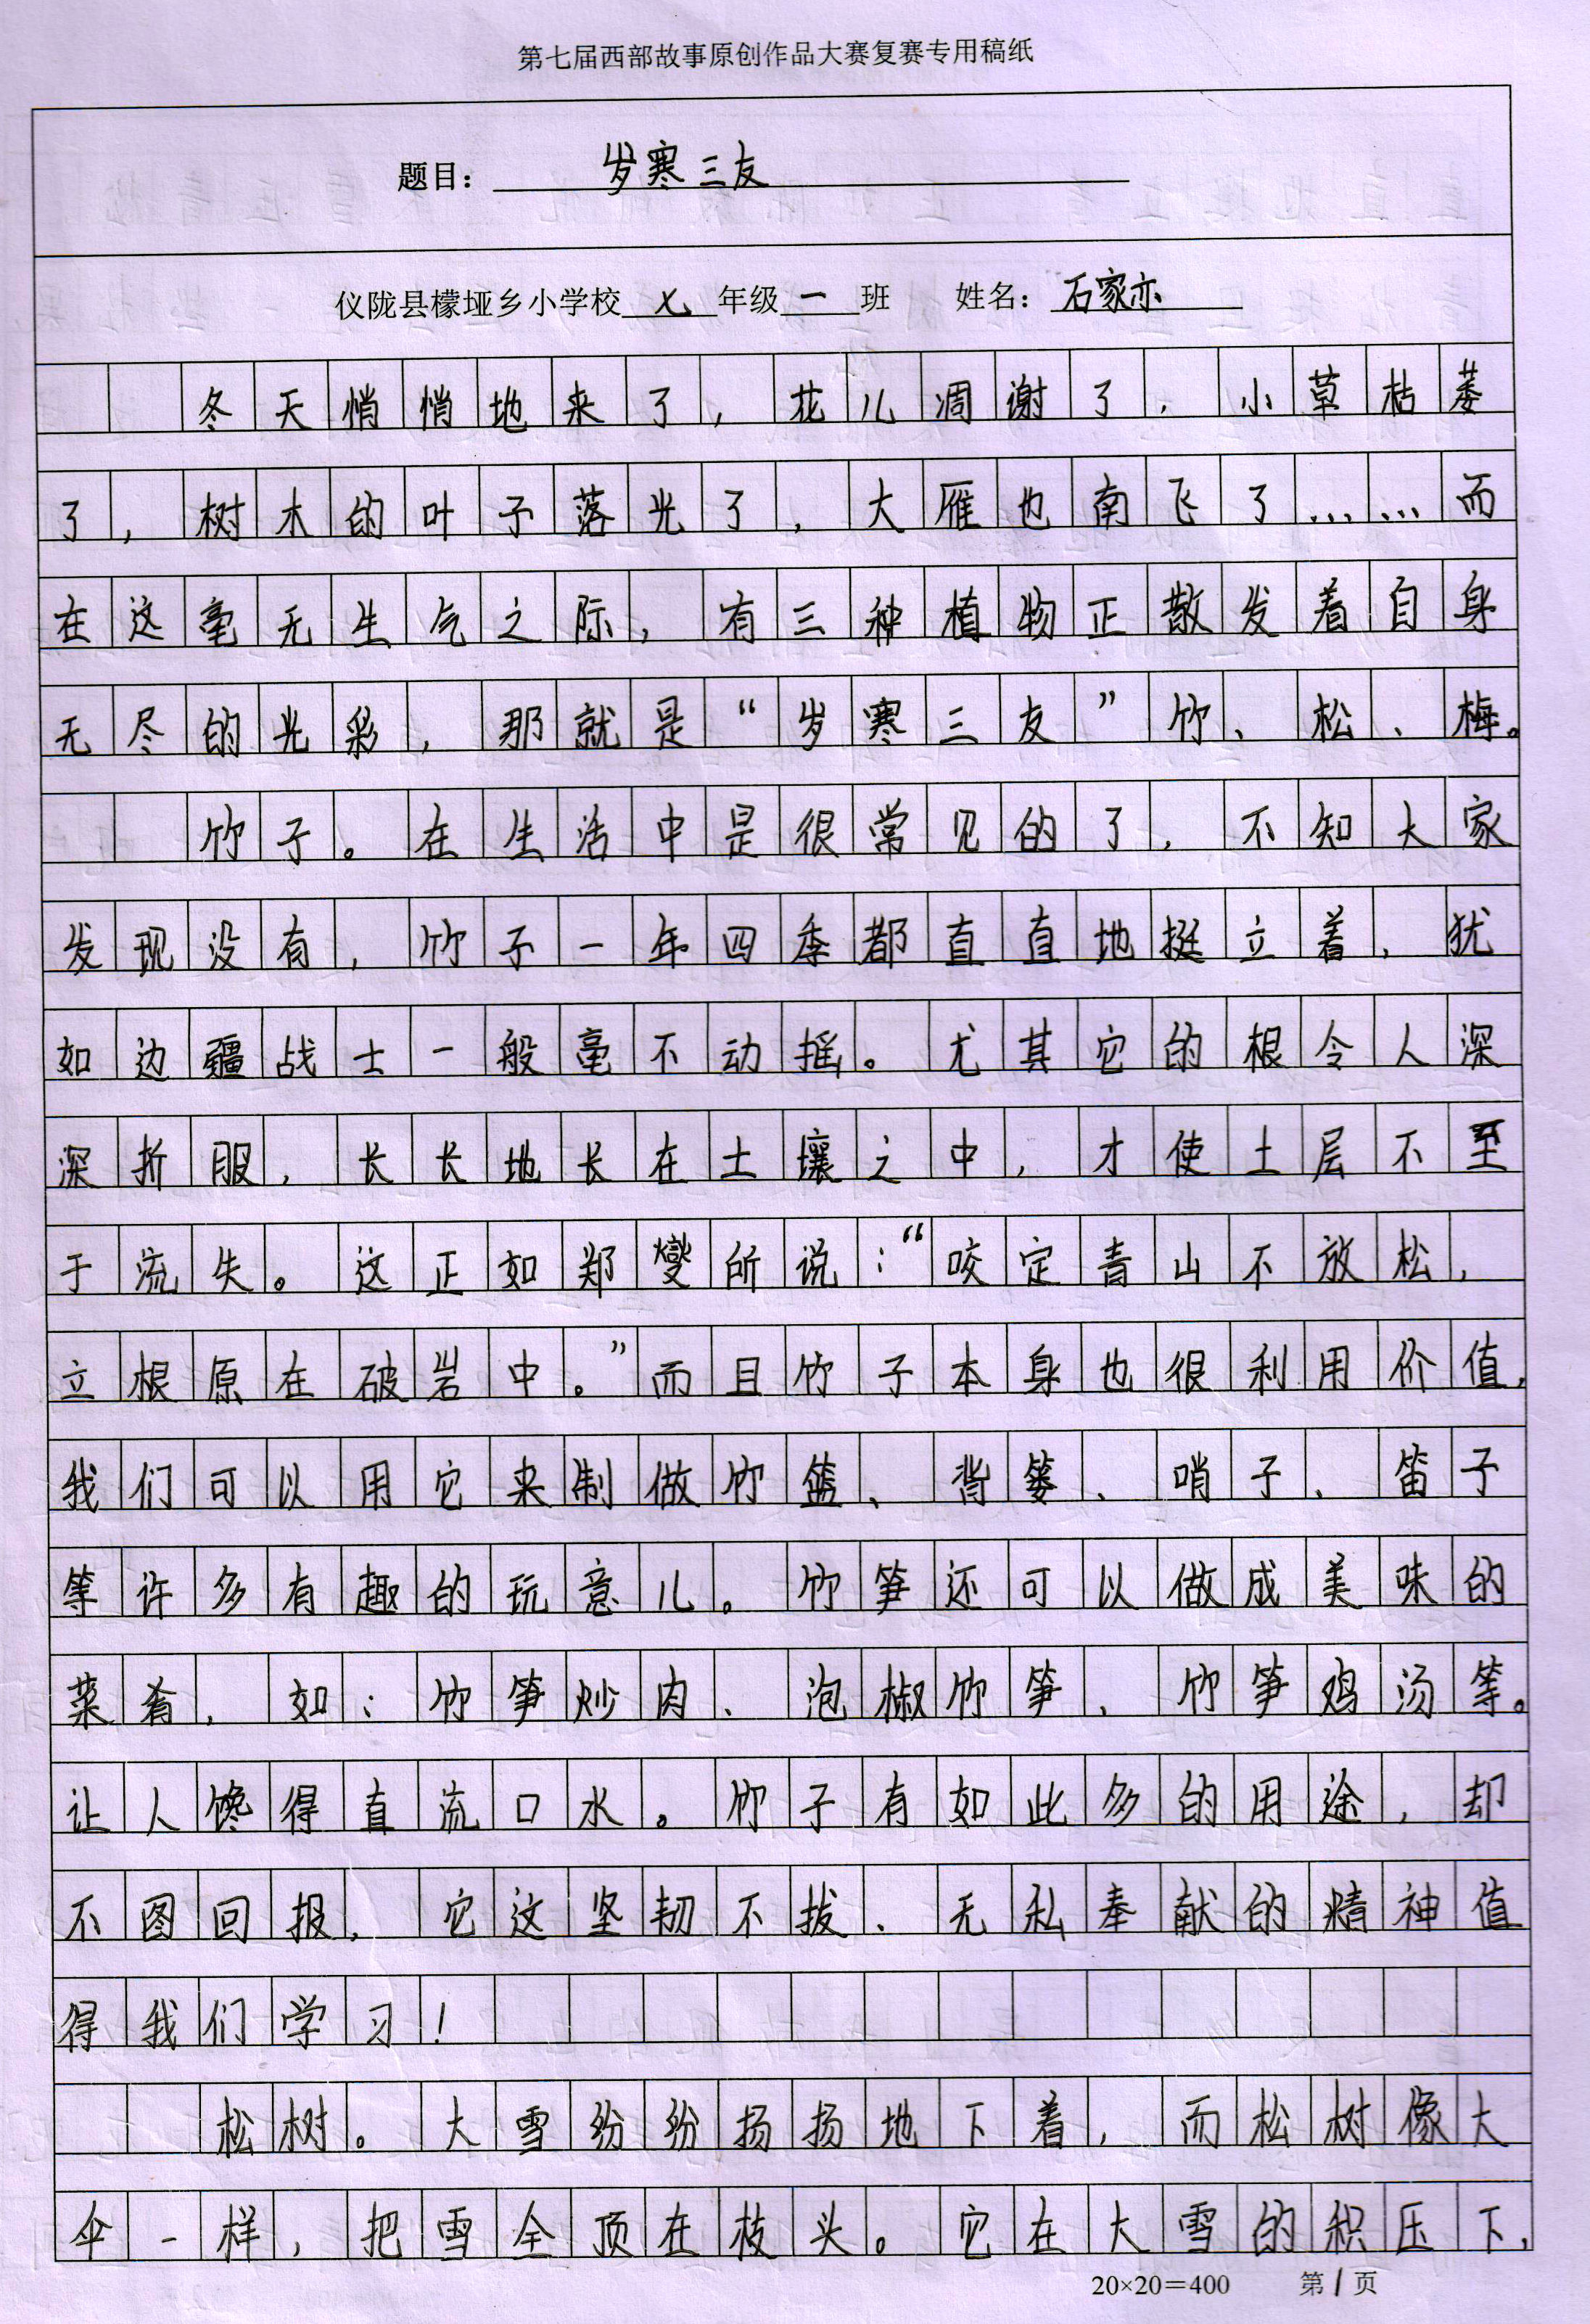 第七届西部故事原创作品大赛复赛专用稿纸
题目：岁寒三友
仪陇县檬垭乡小学校七年级一班 姓名：石家亦
冬天悄悄地来了，花儿凋谢了，小草枯萎
了，树木的叶子落光了，大雁也南飞了……而
在这毫无生气之际，有三种植物正散发着自身
无尽的光彩，那就是“岁寒三友”竹、松、梅。
竹子。在生活中是很常见的了，不知大家
发现没有，竹子一年四季都直直地挺立着，犹
如边疆战士一般毫不动摇。尤其它的根令人深
深折服，长长地长在土壤之中，才使土层不至
于流失。这正如郑燮所说：“咬定青山不放松，
立根原在破岩中。”而且竹子本身也很利用价值，
我们可以用它来制做竹篮、背篓、哨子、笛子
等许多有趣的玩意儿。竹笋还可以做成美味的
菜肴，如：竹笋炒肉、泡椒竹笋、竹笋鸡汤等。
让人馋得直流口水。竹子有如此多的用途，却
不图回报，它这坚韧不拔、无私奉献的精神值
得我们学习！
松树。大雪纷纷扬扬地下着，而松树像大
伞一样，把雪全顶在枝头。它在大雪的积压下，
20×20＝400 第1页